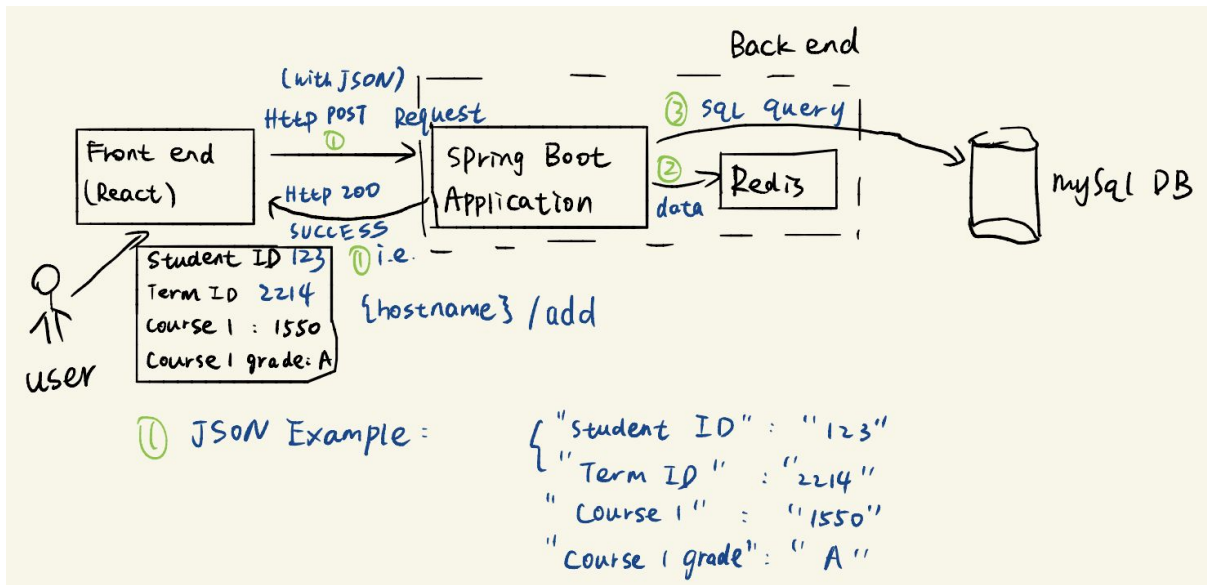 Back end
(with JSON)
Http POST Request
①
③ SQL query
Front end
(React)
Spring Boot
Application
②
data
Redis
mySql DB
Http 200
SUCCESS
Student ID 123
Term ID 2214
Course 1 : 1550
Course 1 grade: A
① i.e.
{hostname} /add
user
① JSON Example :
{ "Student ID" : "123"
"Term ID" : "2214"
"Course 1" : "1550"
"Course 1 grade" : "A"